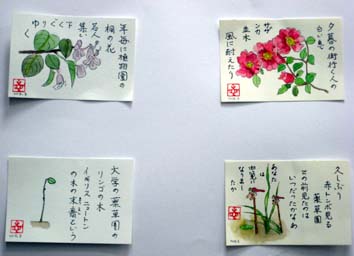 年毎に植物園の
桐の花
名人
集い
下
くぐり
ゆく
夕暮の街行く人の
白い息
サザ
ンカ
並木
風に耐えたり
大学の薬草園の
リンゴの木
イギリスニュートン
の木の末裔という
久しぶり
赤トンボ見る
薬草園
この前見たのは
いつだったかなぁ
あなた
は
なりまし
たか